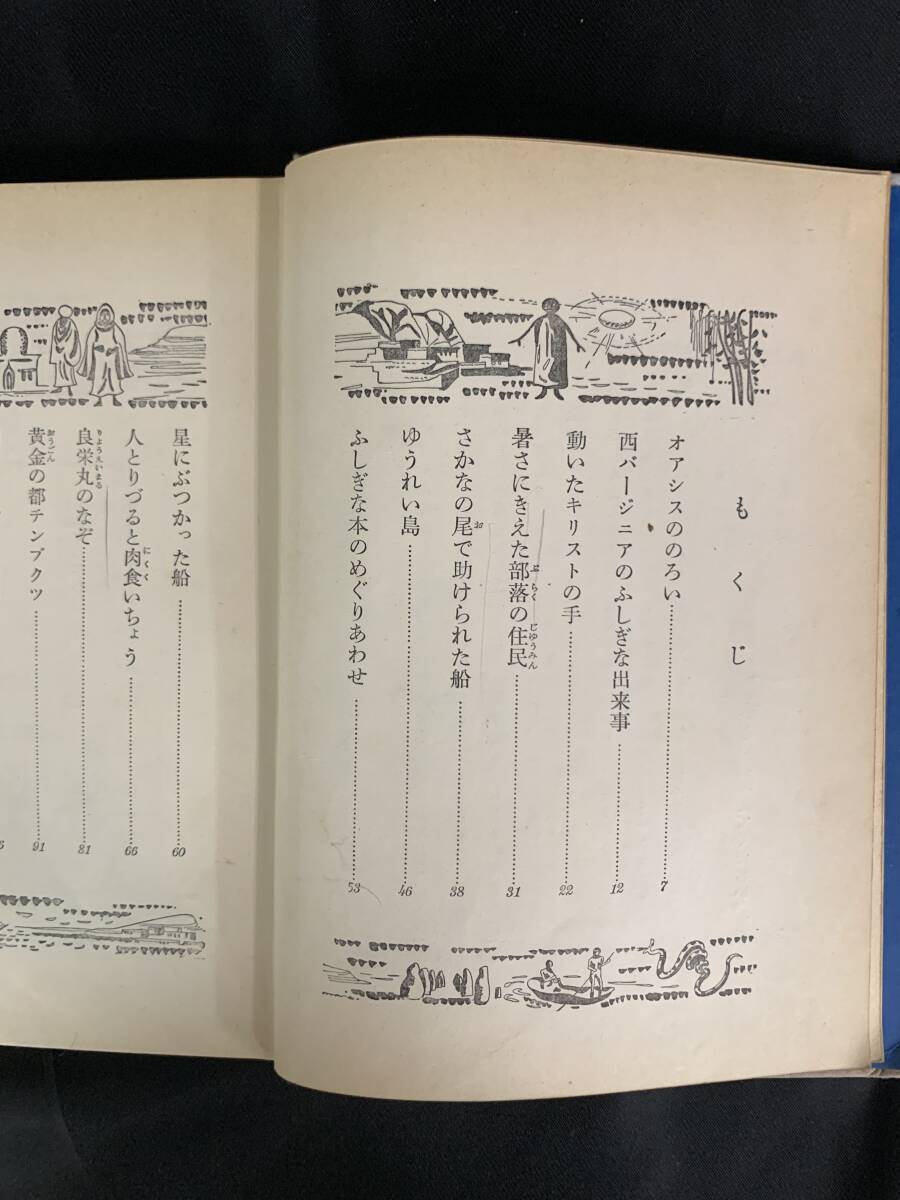 もくじ
オアシスののろい……………7
西バージニアのふしぎな出来事……………12
動いたキリストの手……………22
暑さにきえた部落の住民……………31
さかなの尾で助けられた船……………38
ゆうれい島……………46
ふしぎな本のめぐりあわせ……………53
星にぶつかった船……………60
人とりづると肉食いちょう……………66
良栄丸のなぞ……………81
黄金の都テンブクツ……………91